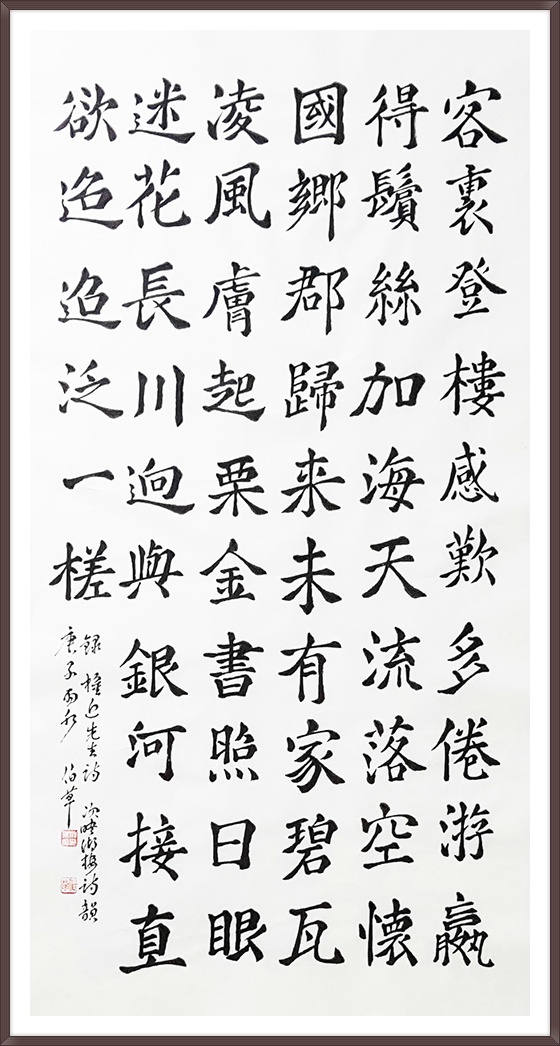 客裏登樓感歎多倦游嬴
得鬢絲加海天流落空懷
國鄉郡歸来未有家碧瓦
凌風膚起栗金書照日眼
迷花長川逈與銀河接直
欲迢迢泛一槎
錄權近先生詩 次映湖樓詩韻
庚子雨 草